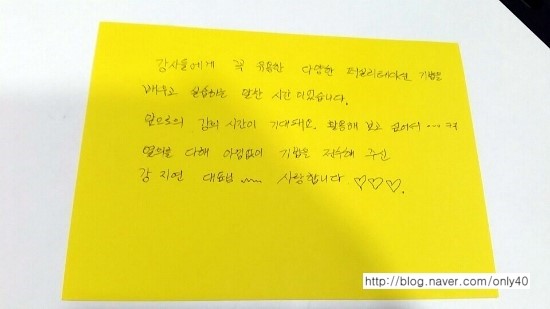 강사들에게 꼭 유용한 다양한 퍼실리테이션 기법을
배우고 실습하는 알찬 시간 이었습니다.
앞으로의 강의 시간이 기대돼요. 활용해 보고 싶어서 ... ㅋㅋ
열의를 다해 아낌없이 기법을 전수해 주신
강지연 대표님 ~~ 사랑합니다 ♡♡♡.
http://blog.naver.com/only40